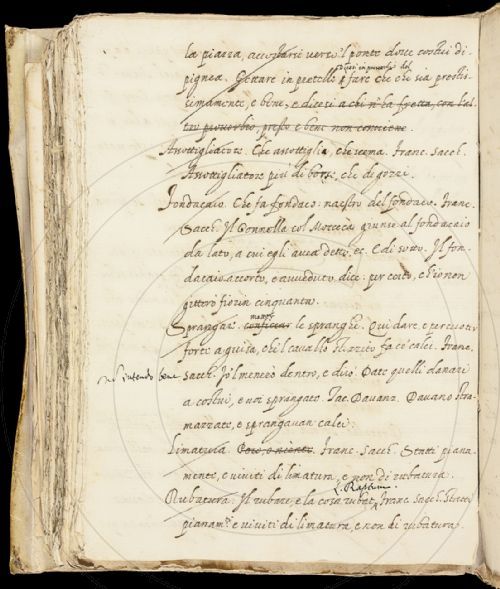 la piazza, accostarsi verso 'l ponte dove costui di-
pignea. Gettare in pretelle è fare che che sia prestis-
dicesi in proverbio del
simamente, e bene, e dicesi a chi n'ha fretta, con l'al-
tro proverbio, presto e bene non conviene.
Assottigliatore. Che assottiglia, che scema. Franc. Sacch.
Assottigliatore più di borse, che di gozzi.
Fondacaio. Che fa fondaco: maestro del fondaco. Franc.
Sacch. Il Gonnella col Mocceca giunse al fondacaio
da lato, a cui egli avea detto, ec. E di sotto. Il fon-
dacaio accorto, e avveduto dice: per certo, ch'io non
gittero fiorin cinquanta.
mettere
Sprangar. conficcar le spranghe. Qui dare, e percuoter
forte a guisa, che 'l cavallo fa co' calci. Franc.
non intendo bene
Sacch. Io 'l menerò dentro, e dirò. Date quelli danari
a costui, e voi sprangate. Tac. Davanz. Davano stra-
mazzate, e sprangavan calci.
Limatura. Poco, o niente. Franc. Sacch. Statti piana-
mente, e viviti di limatura, e non di rubatura.
Rubatura. Il rubare, e la cosa rubata. Franc. Sacch. Statti
pianam.te e viviti di limatura, e non di rubatura.